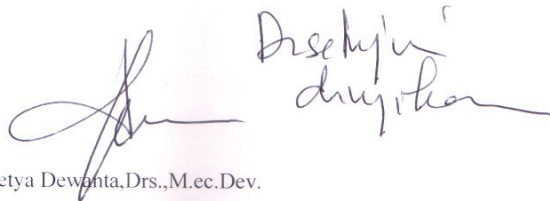 Disetujui
diujikan
etya Dewanta,Drs.,M.ec.Dev.